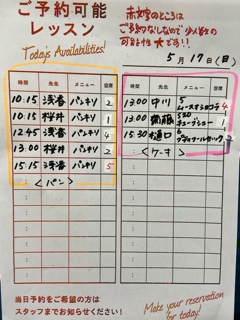 ご予約可能
レッスン
Today's Availabilities!
赤文字のところは
ご予約なしなので少人数の
可能性大です!!
5月17日(日)
時間 先生 メニュー 空席
10:15 浅春 パンキリ 2
10:15 桜井 パンキリ 1
12:45 浅春 パンキリ 4
13:00 桜井 パンキリ 2
15:15 浅春 パンキリ 5
: <パン>
時間 先生 メニュー 空席
13:00 中川 4
13:00 1
15:30 樋口
: <ケーキ>
当日予約をご希望の方は
スタッフまでお知らせください!
Make your reservation
for today!